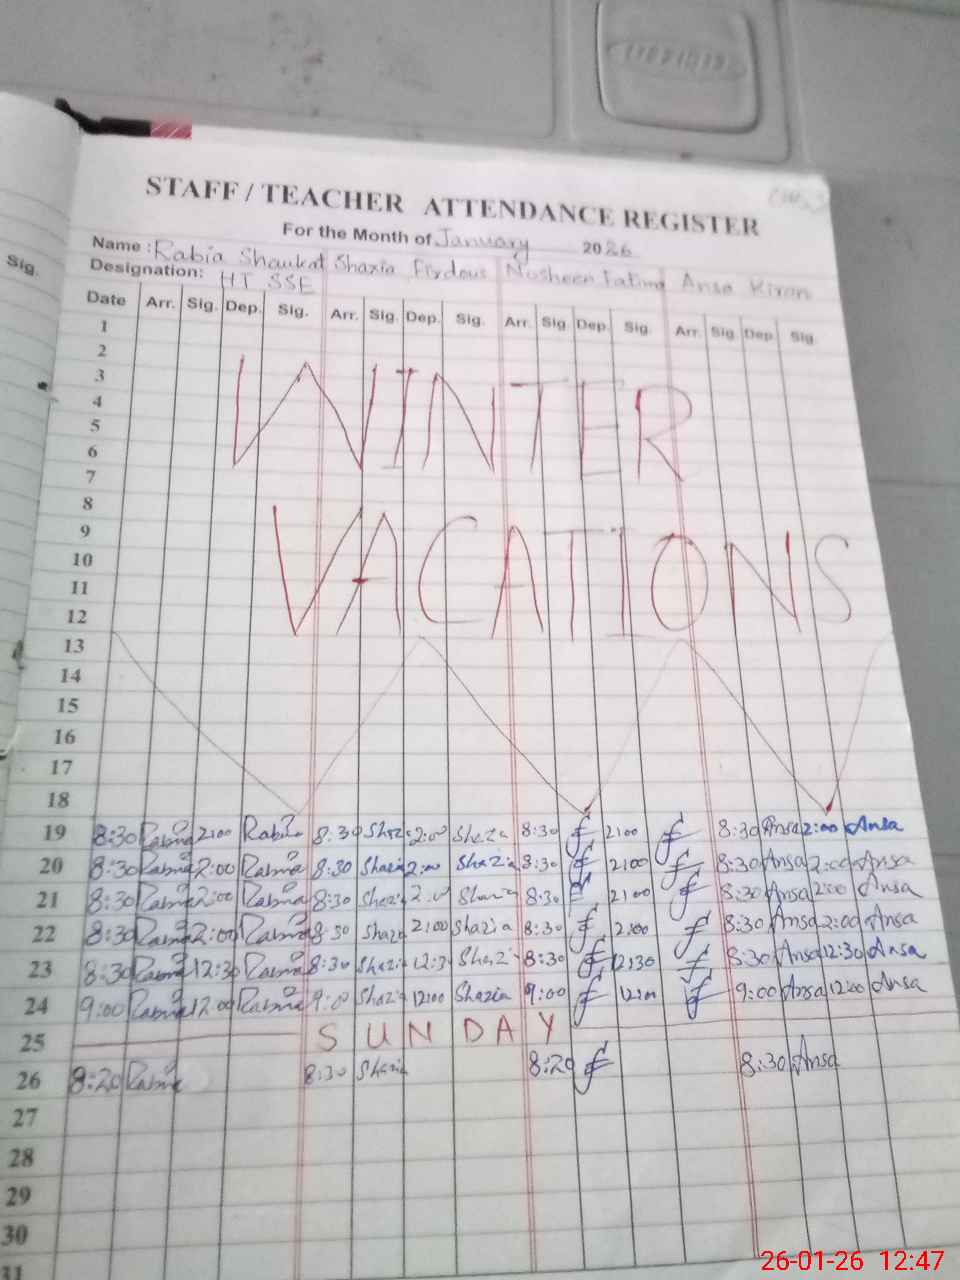 STAFF / TEACHER ATTENDANCE REGISTER
For the Month of January 2026
Sig.
Name : Rabia Shaukat Shazia Firdous Nosheen Fatima Ansa Kiran
Designation: HT SSE
Date Arr. Sig. Dep. Sig. Arr. Sig. Dep. Sig. Arr. Sig. Dep. Sig. Arr. Sig. Dep. Sig.
1
2
3
4
5
6
WINTER
7
8
9
10
11
12
VACATIONS
13
14
15
16
17
18
19 8:30 Rabia 2:00 Rabia 8:30 Shazia 2:00 Shazia 8:30 2:00 8:30 Ansa 2:00 Ansa
20 8:30 Rabia 2:00 Rabia 8:30 Shazia 2:00 Shazia 8:30 2:00 8:30 Ansa 2:00 Ansa
21 8:30 Rabia 2:00 Rabia 8:30 Shazia 2:00 Shazia 8:30 2:00 8:30 Ansa 2:00 Ansa
22 8:30 Rabia 2:00 Rabia 8:30 Shazia 2:00 Shazia 8:30 2:00 8:30 Ansa 2:00 Ansa
23 8:30 Rabia 12:30 Rabia 8:30 Shazia 12:30 Shazia 8:30 12:30 8:30 Ansa 12:30 Ansa
24 9:00 Rabia 12:00 Rabia 9:00 Shazia 12:00 Shazia 9:00 12:00 9:00 Ansa 12:00 Ansa
25 SUNDAY
26 8:20 Rabia 8:30 Shazia 8:20 8:30 Ansa
27
28
29
30
31
26-01-26 12:47